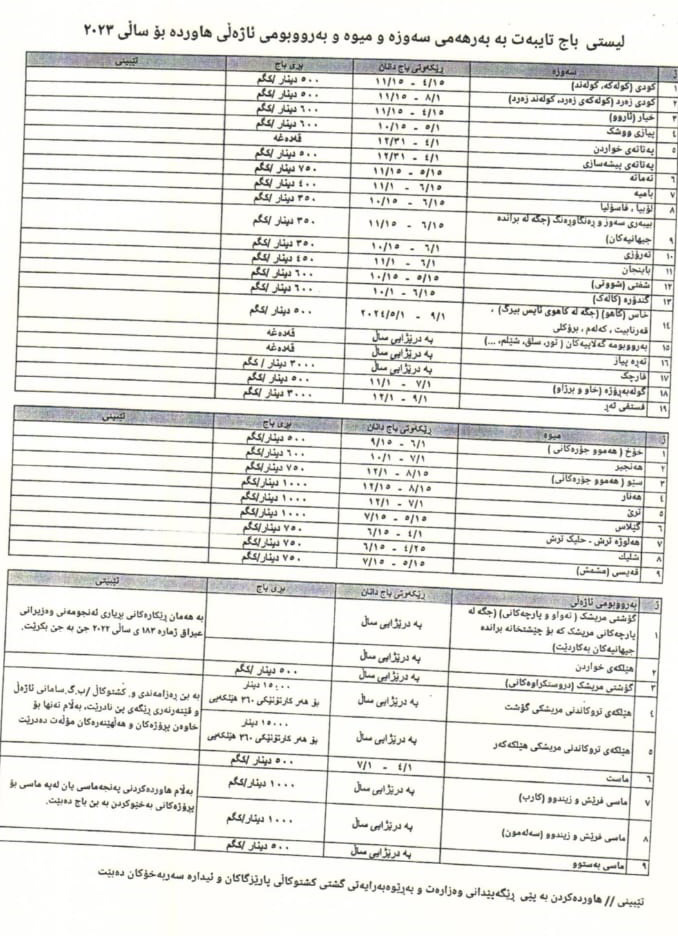 لیستی باج تایبەت بە بەرهەمی سەوزە و میوە و بەرووبومی ئاژەڵی هاوردە بۆ ساڵی ٢٠٢٣
ژ سەوزە ڕێکەوتی باج دانان بڕی باج تێبینی
١ کودی (کولەکە، کولەند) ٤/١٥ - ١١/١٥ ٥٠٠ دینار /کگم
٢ کودی زەرد (کولەکەی زەرد، کولەند زەرد) ٨/١ - ١١/١٥ ٥٠٠ دینار /کگم
٣ خیار (ئاروو) ٤/١٥ - ١١/١٥ ٦٠٠ دینار /کگم
٤ پیازی ووشک ٥/١ - ١٠/١٥ ٦٠٠ دینار /کگم
٥ پەتاتەی خواردن ٤/١ - ١٢/٣١ قەدەغە
پەتاتەی پیشەسازی ٤/١ - ١٢/٣١ ٥٠٠ دینار /کگم
٦ تەماتە ٥/١٥ - ١١/١٥ ٧٥٠ دینار /کگم
٧ بامیە ٦/١٥ - ١١/١ ٤٠٠ دینار /کگم
٨ لۆبیا ، فاسۆلیا ٦/١٥ - ١٠/١٥ ٣٥٠ دینار /کگم
٩ بیبەری سەوز و ڕەنگاوڕەنگ (جگە لە براندە
جیهانیەکان) ٦/١٥ - ١١/١٥ ٣٥٠ دینار /کگم
١٠ تەرۆزی ٦/١ - ١٠/١٥ ٣٥٠ دینار /کگم
١١ باینجان ٦/١ - ١١/١ ٤٥٠ دینار /کگم
١٢ شفتی (شووتی) ٥/١٥ - ١٠/١٥ ٦٠٠ دینار /کگم
١٣ گندۆرە (کاڵەک) ٦/١٥ - ١٠/١ ٦٠٠ دینار /کگم
١٤ خاس (کاهو) (جگە لە کاهوی ئایس بیرگ) ،
قەرنابیت ، کەلەم ، برۆکلی ٩/١ - ٢٠٢٤/٥/١ ٥٠٠ دینار /کگم
١٥ بەرووبومە گەلاییەکان ( تور، سلق، شێلم، ...) بە درێژایی ساڵ قەدەغە
١٦ تەرە پیاز بە درێژایی ساڵ قەدەغە
١٧ قارچک بە درێژایی ساڵ ٣٠٠٠ دینار / کگم
١٨ گولەبەڕۆژە (خاو و برژاو) ٧/١ - ١١/١ ٥٠٠ دینار /کگم
١٩ فستقی تەڕ ٩/١ - ١٢/١ ٣٠٠٠ دینار /کگم
ژ میوە ڕێکەوتی باج دانان بڕی باج تێبینی
١ خۆخ ( هەموو جۆرەکانی ) ٦/١ - ٩/١٥ ٥٠٠ دینار/کگم
٢ هەنجیر ٧/١ - ١٠/١ ٦٠٠ دینار/کگم
٣ سێو ( هەموو جۆرەکانی) ٨/١٥ - ١٢/١ ٧٥٠ دینار/کگم
٤ هەنار ٨/١٥ - ١٢/١٥ ١٠٠٠ دینار/کگم
٥ ترێ ٧/١ - ١٢/١ ١٠٠٠ دینار/کگم
٦ گێلاس ٥/١٥ - ٧/١٥ ١٠٠٠ دینار/کگم
٧ هەلوژە ترش - حلیک ترش ٤/١ - ٦/١٥ ٧٥٠ دینار/کگم
٨ شلیک ٤/٢٥ - ٦/١٥ ٧٥٠ دینار/کگم
٩ قەیسی (مشمش) ٥/١٥ - ٧/١٥ ٧٥٠ دینار/کگم
ژ بەرووبومی ئاژەڵی ڕێکەوتی باج دانان بڕی باج تێبینی
١ گۆشتی مریشک ( تەواو و پارچەکانی) (جگە لە
پارچەکانی مریشک کە بۆ چێشتخانە براندە
جیهانیەکان بەکاردێت) بە درێژایی ساڵ بە هەمان ڕێکارەکانی بڕیاری ئەنجومەنی وەزیرانی
عیراق ژمارە ١٨٣ ی ساڵی ٢٠٢٢ جێ بە جێ بکرێت.
٢ هێلکەی خواردن بە درێژایی ساڵ
٣ گۆشتی مریشک (دروستکراوەکانی) بە درێژایی ساڵ ٥٠٠ دینار /کگم
٤ هێلکەی تروکاندنی مریشکی گۆشت بە درێژایی ساڵ ١٥٠٠٠ دینار
بۆ هەر کارتۆنێکی ٣٦٠ هێلکەیی بە بێ ڕەزامەندی و. کشتوکاڵ /ب.گ.سامانی ئاژەڵ
و ڤێتەرنەری ڕێگەی پێ نادرێت، بەڵام تەنها بۆ
خاوەن پرۆژەکان و هەڵهێنەرەکان مۆڵەت دەدرێت
٥ هێلکەی تروکاندنی مریشکی هێلکەکەر بە درێژایی ساڵ ١٥٠٠٠ دینار
بۆ هەر کارتۆنێکی ٣٦٠ هێلکەیی
٦ ماست ٤/١ - ٧/١ ٥٠٠ دینار /کگم
٧ ماسی فرێش و زیندوو (کارب) بە درێژایی ساڵ ١٠٠٠ دینار/کگم بەڵام هاوردەکردنی پەنجەماسی یان لەپە ماسی بۆ
پرۆژەکانی بەخێوکردن بە بێ باج دەبێت.
٨ ماسی فرێش و زیندوو (سەلەمون) بە درێژایی ساڵ ١٠٠٠ دینار/کگم
٩ ماسی بەستوو بە درێژایی ساڵ ٥٠٠ دینار /کگم
تێبینی // هاوردەکردن بە پێی ڕێگەپێدانی وەزارەت و بەڕێوەبەرایەتی گشتی کشتوکاڵی پارێزگاکان و ئیدارە سەربەخۆکان دەبێت